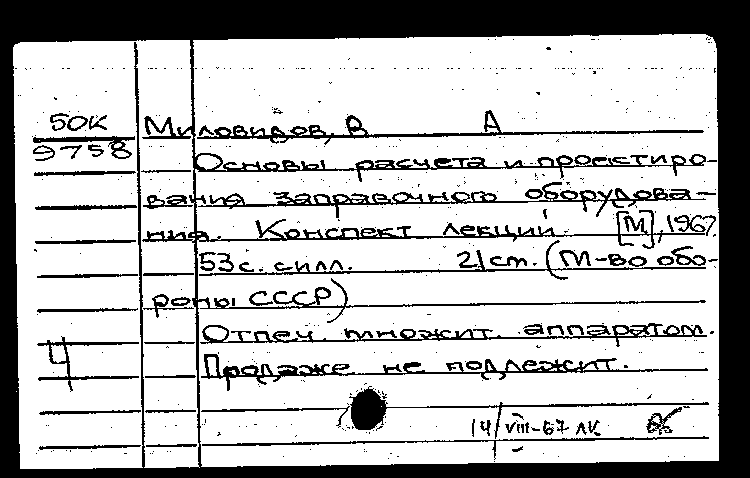 50К Миловидов, В. А
9758 Основы расчета и проектиро-
вания заправочного оборудова-
ния. Конспект лекций. [М], 1967.
53 с. силл. 21 ст. (М-во обо-
роны СССР)
Отпеч. множит. аппаратом.
Ч Продаже не подлежит.
14/VIII-67 ЛК